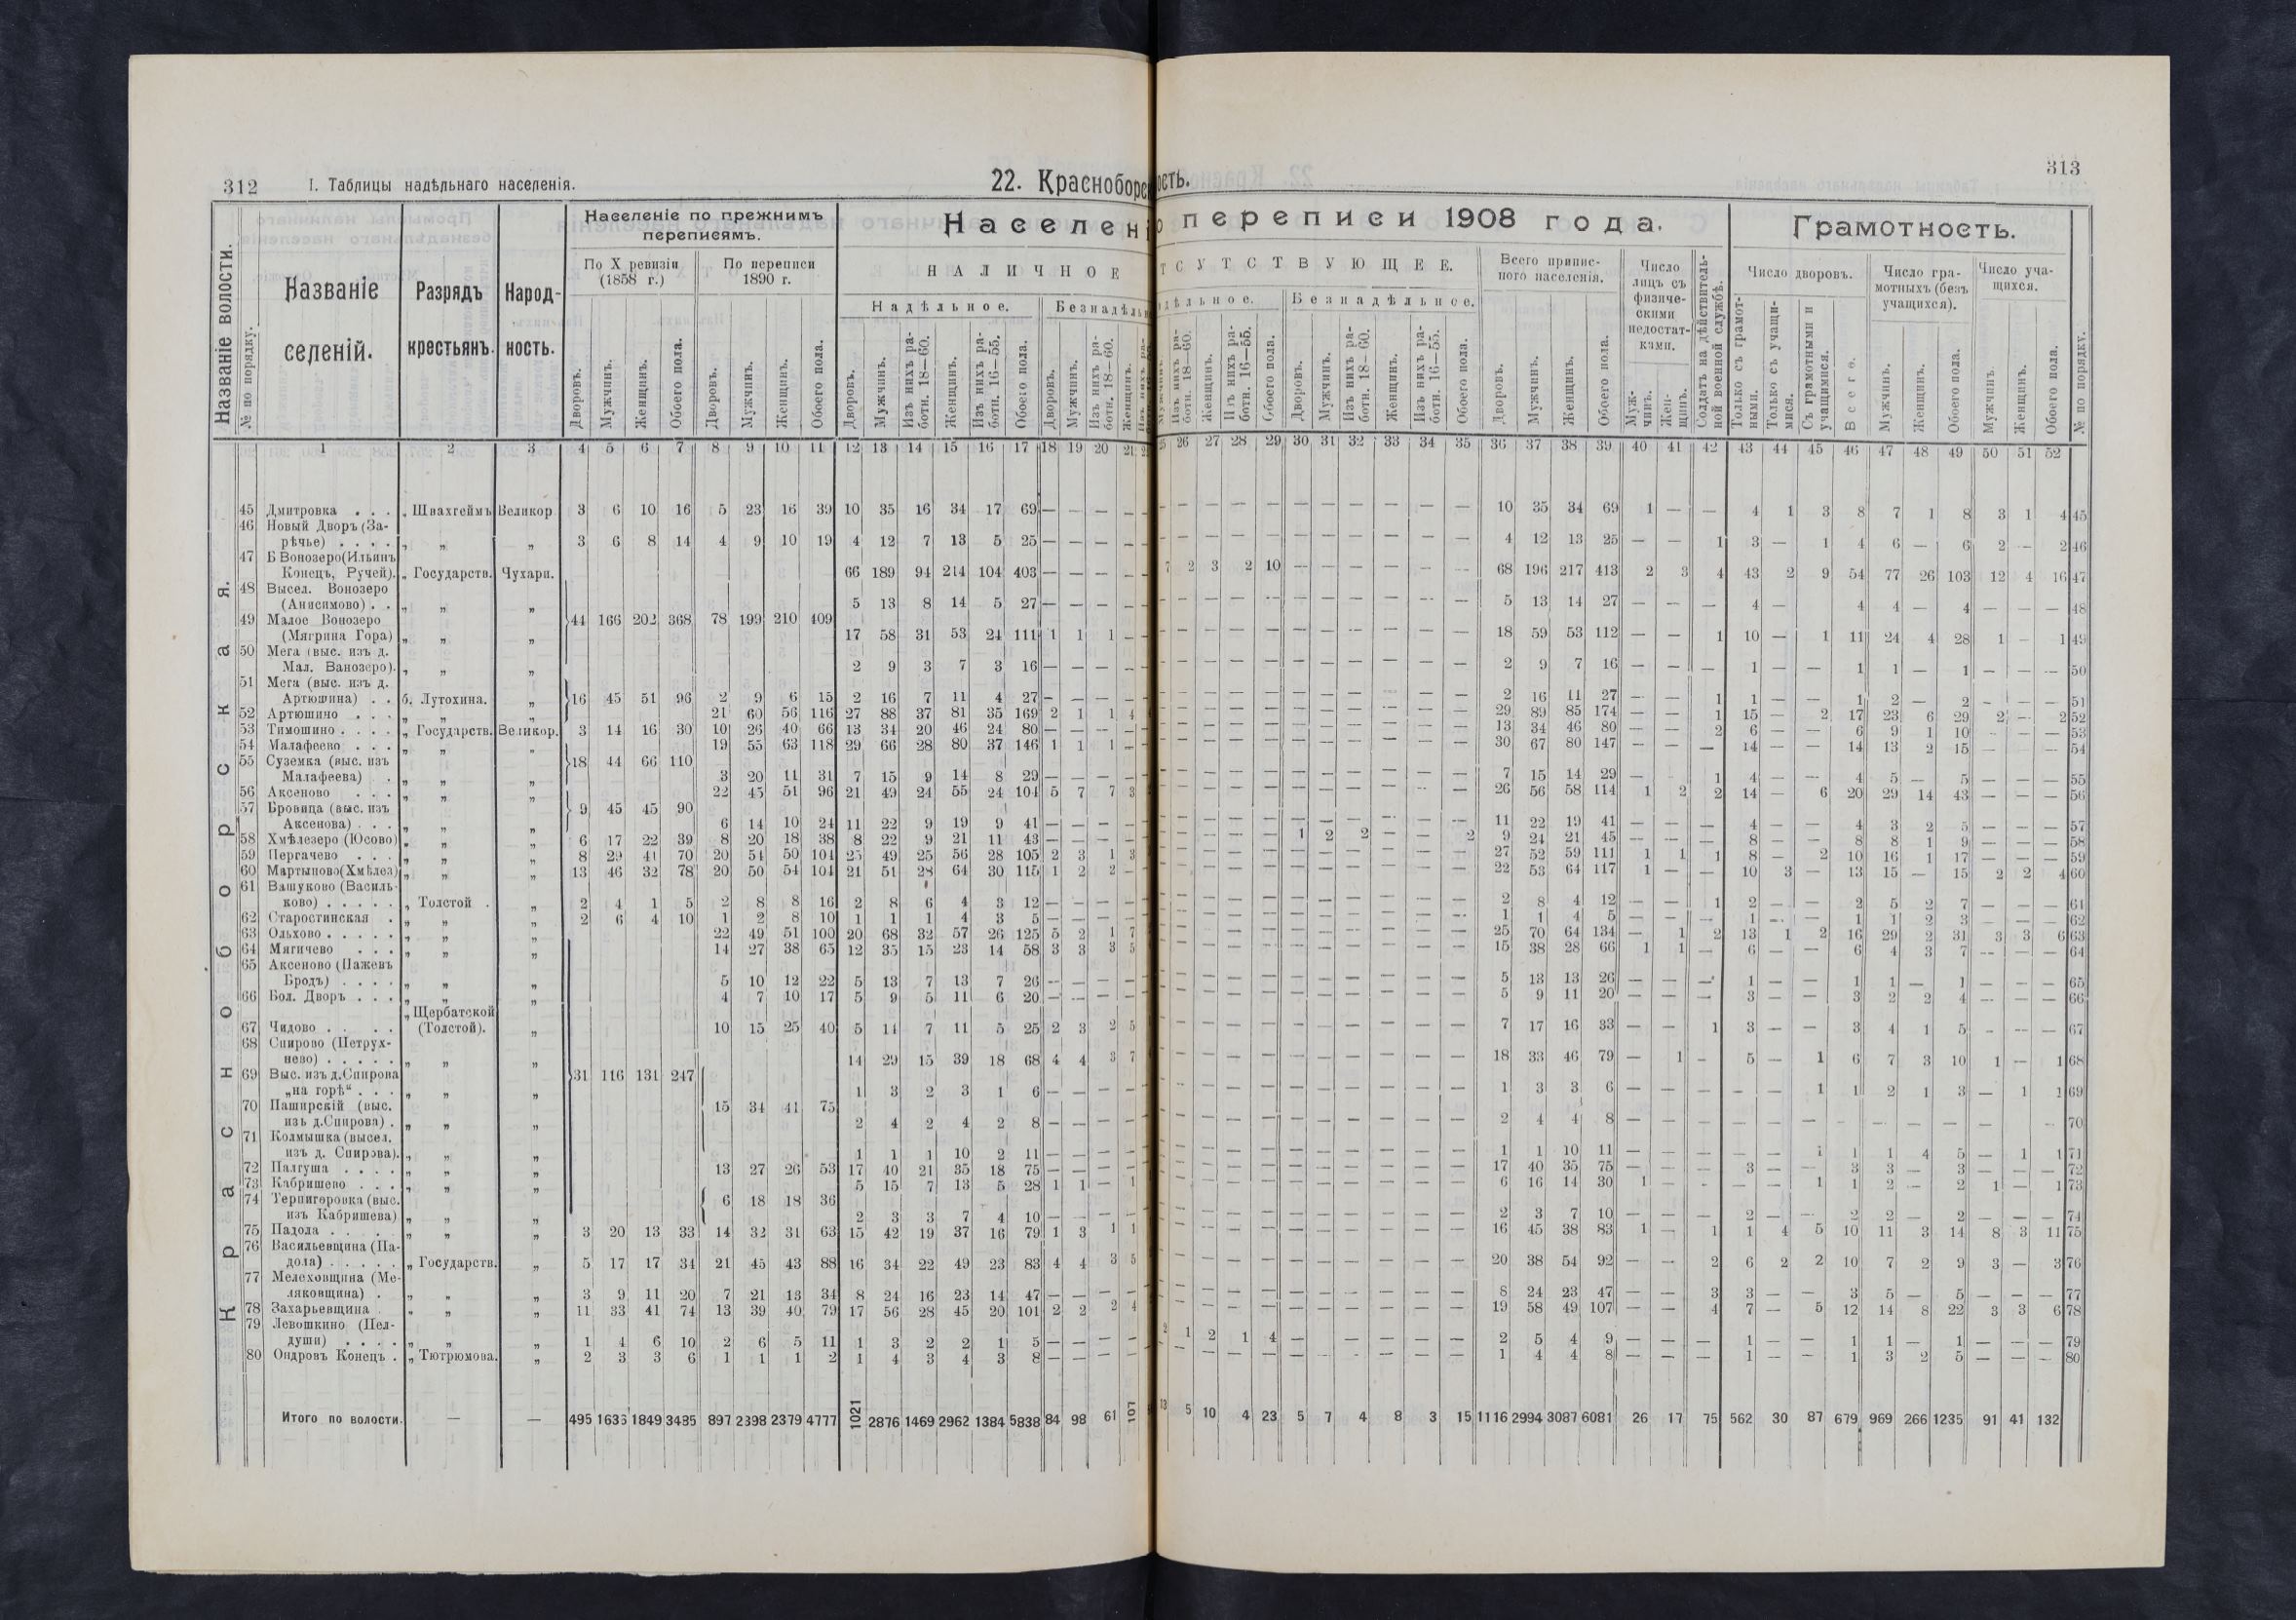 312 I. Таблицы надѣльнаго населенія.
22. Красноборс
ость.
313
Названіе волости.
№ по порядку.
Названіе селеній.
Разрядъ крестьянъ.
Народность.
Населеніе по прежнимъ переписямъ.
По X ревизіи (1858 г.)
По переписи 1890 г.
Населен
о переписи 1908 года.
Грамотность.
НАЛИЧНОЕ
ТСУТСТВУЮЩЕЕ.
Надѣльное.
Безнадѣльн
Безнадѣльное.
Всего приписного населенія.
Число лицъ съ физическими недостатками.
Солдатъ на дѣйствительной военной службѣ.
Число дворовъ.
Число грамотныхъ (безъ учащихся).
Число учащихся.
Дворовъ. Мужчинъ. Женщинъ. Обоего пола. Дворовъ. Мужчинъ. Женщинъ. Обоего пола. Дворовъ. Мужчинъ. Изъ нихъ работн. 18—60. Женщинъ. Изъ нихъ работн. 16—55. Обоего пола. Дворовъ. Мужчинъ. Изъ нихъ работн. 18—60. Женщинъ.
Изъ нихъ работн. 18—60. Женщинъ. Изъ нихъ работн. 16—55. Обоего пола. Дворовъ. Мужчинъ. Изъ нихъ работн. 18—60. Женщинъ. Изъ нихъ работн. 16—55. Обоего пола. Дворовъ. Мужчинъ. Женщинъ. Обоего пола. Мужчинъ. Женщинъ. Только съ грамотными. Только съ учащимися. Съ грамотными и учащимися. Всего. Мужчинъ. Женщинъ. Обоего пола. Мужчинъ. Женщинъ. Обоего пола. № по порядку.
1 2 3 4 5 6 7 8 9 10 11 12 13 14 15 16 17 18 19 20 21
26 27 28 29 30 31 32 33 34 35 36 37 38 39 40 41 42 43 44 45 46 47 48 49 50 51 52
Красноборская.
45 Дмитровка . . . „ Швахгеймъ Великор 3 6 10 16 5 23 16 39 10 35 16 34 17 69 — — — — — — — — — — — — — — 10 35 34 69 1 — — 4 1 3 8 7 1 8 3 1 4 45
46 Новый Дворъ (За-
рѣчье) . . . . „ „ „ 3 6 8 14 4 9 10 19 4 12 7 13 5 25 — — — — — — — — — — — — — — 4 12 13 25 — — 1 3 — 1 4 6 — 6 2 — 2 46
47 Б Вонозеро(Ильинъ
Конецъ, Ручей). „ Государств. Чухарн. 66 189 94 214 104 403 — — — — 7 2 3 2 10 — — — — — — 68 196 217 413 2 3 4 43 2 9 54 77 26 103 12 4 16 47
48 Высел. Вонозеро
(Анисимово) . . „ „ „ 5 13 8 14 5 27 — — — — — — — — — — — — — — 5 13 14 27 — — — 4 — 4 4 — 4 — — — 48
49 Малое Вонозеро 44 166 202 368 78 199 210 409
(Мягрина Гора) „ „ „ 17 58 31 53 24 111 1 1 1 — — — — — — — — — — — 18 59 53 112 — — 1 10 — 1 11 24 4 28 1 — 1 49
50 Мега (выс. изъ д.
Мал. Ванозеро). „ „ „ 2 9 3 7 3 16 — — — — — — — — — — — — — — 2 9 7 16 — — — 1 — — 1 1 — 1 — — — 50
51 Мега (выс. изъ д.
Артюшина) . . б. Лутохина. „ 16 45 51 96 2 9 6 15 2 16 7 11 4 27 — — — — — — — — — — — — — — 2 16 11 27 — — 1 1 — — 1 2 — 2 — — — 51
52 Артюшино . . . „ „ „ 21 60 56 116 27 88 37 81 35 169 2 1 1 4 — — — — — — — — — — 29 89 85 174 — — 1 15 — 2 17 23 6 29 2 — 2 52
53 Тимошино . . . . „ Государств. Великор. 3 14 16 30 10 26 40 66 13 34 20 46 24 80 — — — — — — — — — — — — — — 13 34 46 80 — — 2 6 — — 6 9 1 10 — — — 53
54 Малафеево . . . „ „ „ 19 55 63 118 29 66 28 80 37 146 1 1 1 — — — — — — — — — — — 30 67 80 147 — — — 14 — — 14 13 2 15 — — 54
55 Суземка (выс. изъ 18 44 66 110
Малафеева) . „ „ „ 3 20 11 31 7 15 9 14 8 29 — — — — — — — — — — — — — — 7 15 14 29 — 1 4 — — 4 5 — 5 — — — 55
56 Аксеново . . . „ „ „ 22 45 51 96 21 49 24 55 24 104 5 7 7 3 — — — — — — — — — — 26 56 58 114 1 2 2 14 — 6 20 29 14 43 — — — 56
57 Бровица (выс. изъ 9 45 45 90
Аксенова) . . . „ „ „ 6 14 10 24 11 22 9 19 9 41 — — — — — — — — — — — — — — 11 22 19 41 — — — 4 — — 4 3 2 5 — — — 57
58 Хмѣлезеро (Юсово) „ „ „ 6 17 22 39 8 20 18 38 8 22 9 21 11 43 — — — — — — — — 1 2 2 — — 2 9 24 21 45 — — — 8 — — 8 8 1 9 — — — 58
59 Пергачево . . . „ „ „ 8 29 41 70 20 54 50 104 25 49 25 56 28 105 2 3 1 3 — — — — — — — — — — 27 52 59 111 1 1 1 8 — 2 10 16 1 17 — — — 59
60 Мартыново(Хмѣлез) „ „ „ 13 46 32 78 20 50 54 104 21 51 28 64 30 115 1 2 2 — — — — — — — — — — — 22 53 64 117 1 — — 10 3 — 13 15 — 15 2 2 4 60
61 Вашуково (Василь-
ково) . . . . . „ Толстой . „ 2 4 1 5 2 8 8 16 2 8 6 4 3 12 — — — — — — — — — — — — — — 2 8 4 12 — — 1 2 — — 2 5 2 7 — — — 61
62 Старостинская . „ „ „ 2 6 4 10 1 2 8 10 1 1 1 4 3 5 — — — — — — — — — — — — — — 1 1 4 5 — — — 1 — — 1 1 2 3 — — — 62
63 Ольхово . . . . . „ „ „ 22 49 51 100 20 68 32 57 26 125 5 2 1 7 — — — — — — — — — — 25 70 64 134 — 1 2 13 1 2 16 29 2 31 3 3 6 63
64 Мягичево . . . „ „ „ 14 27 38 65 12 35 15 23 14 58 3 3 3 5 — — — — — — — — — — 15 38 28 66 1 1 — 6 — — 6 4 3 7 — — — 64
65 Аксеново (Пажевъ
Бродъ) . . . . „ „ „ 5 10 12 22 5 13 7 13 7 26 — — — — — — — — — — — — — — 5 13 13 26 — — — 1 — — 1 1 — 1 — — — 65
66 Бол. Дворъ . . . „ „ „ 4 7 10 17 5 9 5 11 6 20 — — — — — — — — — — — — — — 5 9 11 20 — — — 3 — — 3 2 2 4 — — — 66
„ Щербатской
67 Чидово . . . . (Толстой). „ 10 15 25 40 5 14 7 11 5 25 2 3 2 5 — — — — — — — — — — 7 17 16 33 — — 1 3 — — 3 4 1 5 — — — 67
68 Спирово (Петрух-
нево) . . . . . „ „ „ 14 29 15 39 18 68 4 4 3 7 — — — — — — — — — — 18 33 46 79 — 1 — 5 — 1 6 7 3 10 1 — 1 68
69 Выс. изъ д.Спирова 31 116 131 247
„на горѣ“ . . . „ „ „ 1 3 2 3 1 6 — — — — — — — — — — — — — — 1 3 3 6 — — — — — 1 1 2 1 3 — 1 1 69
70 Паширскій (выс. 15 34 41 75
изъ д.Спирова) . „ „ „ 2 4 2 4 2 8 — — — — — — — — — — — — — — 2 4 4 8 — — — — — — — — — — — — — 70
71 Колмышка (высел.
изъ д. Спирова). „ „ „ 1 1 1 10 2 11 — — — — — — — — — — — — — — 1 1 10 11 — — — — — 1 1 1 4 5 — 1 1 71
72 Палгуша . . . . „ „ „ 13 27 26 53 17 40 21 35 18 75 — — — — — — — — — — — — — — 17 40 35 75 — — — 3 — — 3 3 — 3 — — — 72
73 Кабришево . . . „ „ „ 5 15 7 13 5 28 1 1 — 1 — — — — — — — — — — 6 16 14 30 1 — — — — 1 1 2 — 2 1 — 1 73
74 Терпигоровка (выс. 6 18 18 36
изъ Кабришева) „ „ „ 2 3 3 7 4 10 — — — — — — — — — — — — — — 2 3 7 10 — — — 2 — — 2 2 — 2 — — — 74
75 Падола . . . . „ „ „ 3 20 13 33 14 32 31 63 15 42 19 37 16 79 1 3 1 1 — — — — — — — — — — 16 45 38 83 1 — 1 1 4 5 10 11 3 14 8 3 11 75
76 Васильевщина (Па-
дола) . . . . . „ Государств. „ 5 17 17 34 21 45 43 88 16 34 22 49 23 83 4 4 3 5 — — — — — — — — — — 20 38 54 92 — — 2 6 2 2 10 7 2 9 3 — 3 76
77 Мелеховщина (Ме-
ляковщина) . „ „ „ 3 9 11 20 7 21 13 34 8 24 16 23 14 47 — — — — — — — — — — — — — — 8 24 23 47 — — 3 3 — — 3 5 — 5 — — — 77
78 Захарьевщина . „ „ „ 11 33 41 74 13 39 40 79 17 56 28 45 20 101 2 2 2 4 — — — — — — — — — — 19 58 49 107 — — 4 7 — 5 12 14 8 22 3 3 6 78
79 Левошкино (Пел-
души) . . . . „ „ „ 1 4 6 10 2 6 5 11 1 3 2 2 1 5 — — — — 2 1 2 1 4 — — — — — — 2 5 4 9 — — — 1 — — 1 1 — 1 — — — 79
80 Ондровъ Конецъ . „ Тютрюмова. „ 2 3 3 6 1 1 1 2 1 4 3 4 3 8 — — — — — — — — — — — — — — 1 4 4 8 — — — 1 — — 1 3 2 5 — — — 80
Итого по волости. — — 495 1636 1849 3485 897 2398 2379 4777 1021 2876 1469 2962 1384 5838 84 98 61 107 13 5 10 4 23 5 7 4 8 3 15 1116 2994 3087 6081 26 17 75 562 30 87 679 969 266 1235 91 41 132